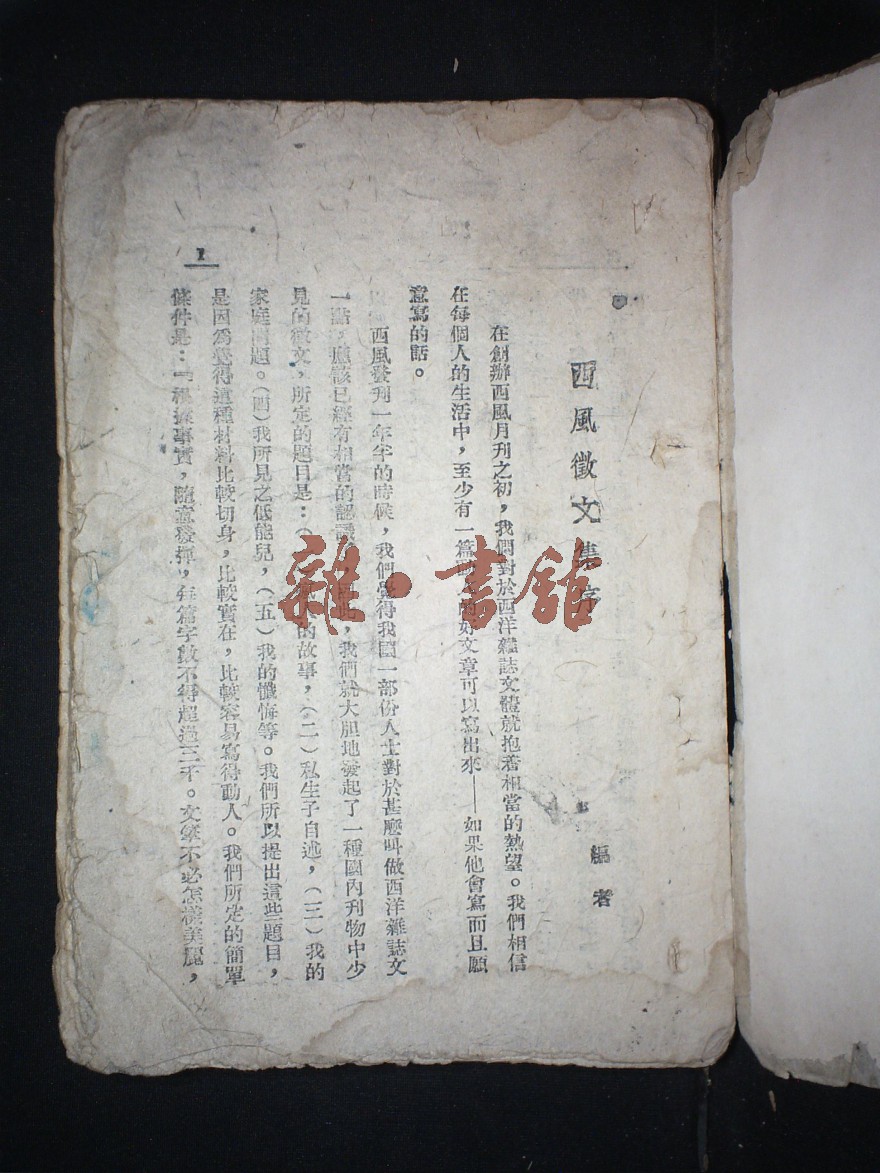 西風徵文集序
編者
在創辦西風月刊之初，我們對於西洋雜誌文體就抱着相當的熱望。我們相信
在每個人的生活中，至少有一篇的好文章可以寫出來——如果他會寫而且願
意寫的話。
西風發刊一年半的時候，我們覺得我國一部份人士對於甚麼叫做西洋雜誌文
一點，應該已經有相當的認識，我們就大胆地發起了一種國內刊物中少
見的徵文，所定的題目是：（的故事，（二）私生子自述，（三）我的
家庭問題。（四）我所見之低能兒，（五）我的懺悔等。我們所以提出這些題目，
是因爲覺得這種材料比較切身，比較實在，比較容易寫得動人。我們所定的簡單
條件是：「根據事實，隨意發揮，每篇字數不得超過三千。文筆不必怎樣美麗，
1
雜·書館